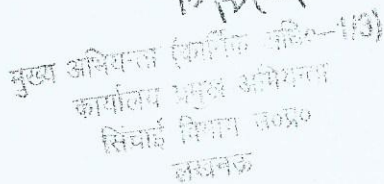 मुख्य अभियन्ता (कार्मिक अधि०—1/3)
कार्यालय प्रमुख अभियन्ता
सिंचाई विभाग उ०प्र०
लखनऊ